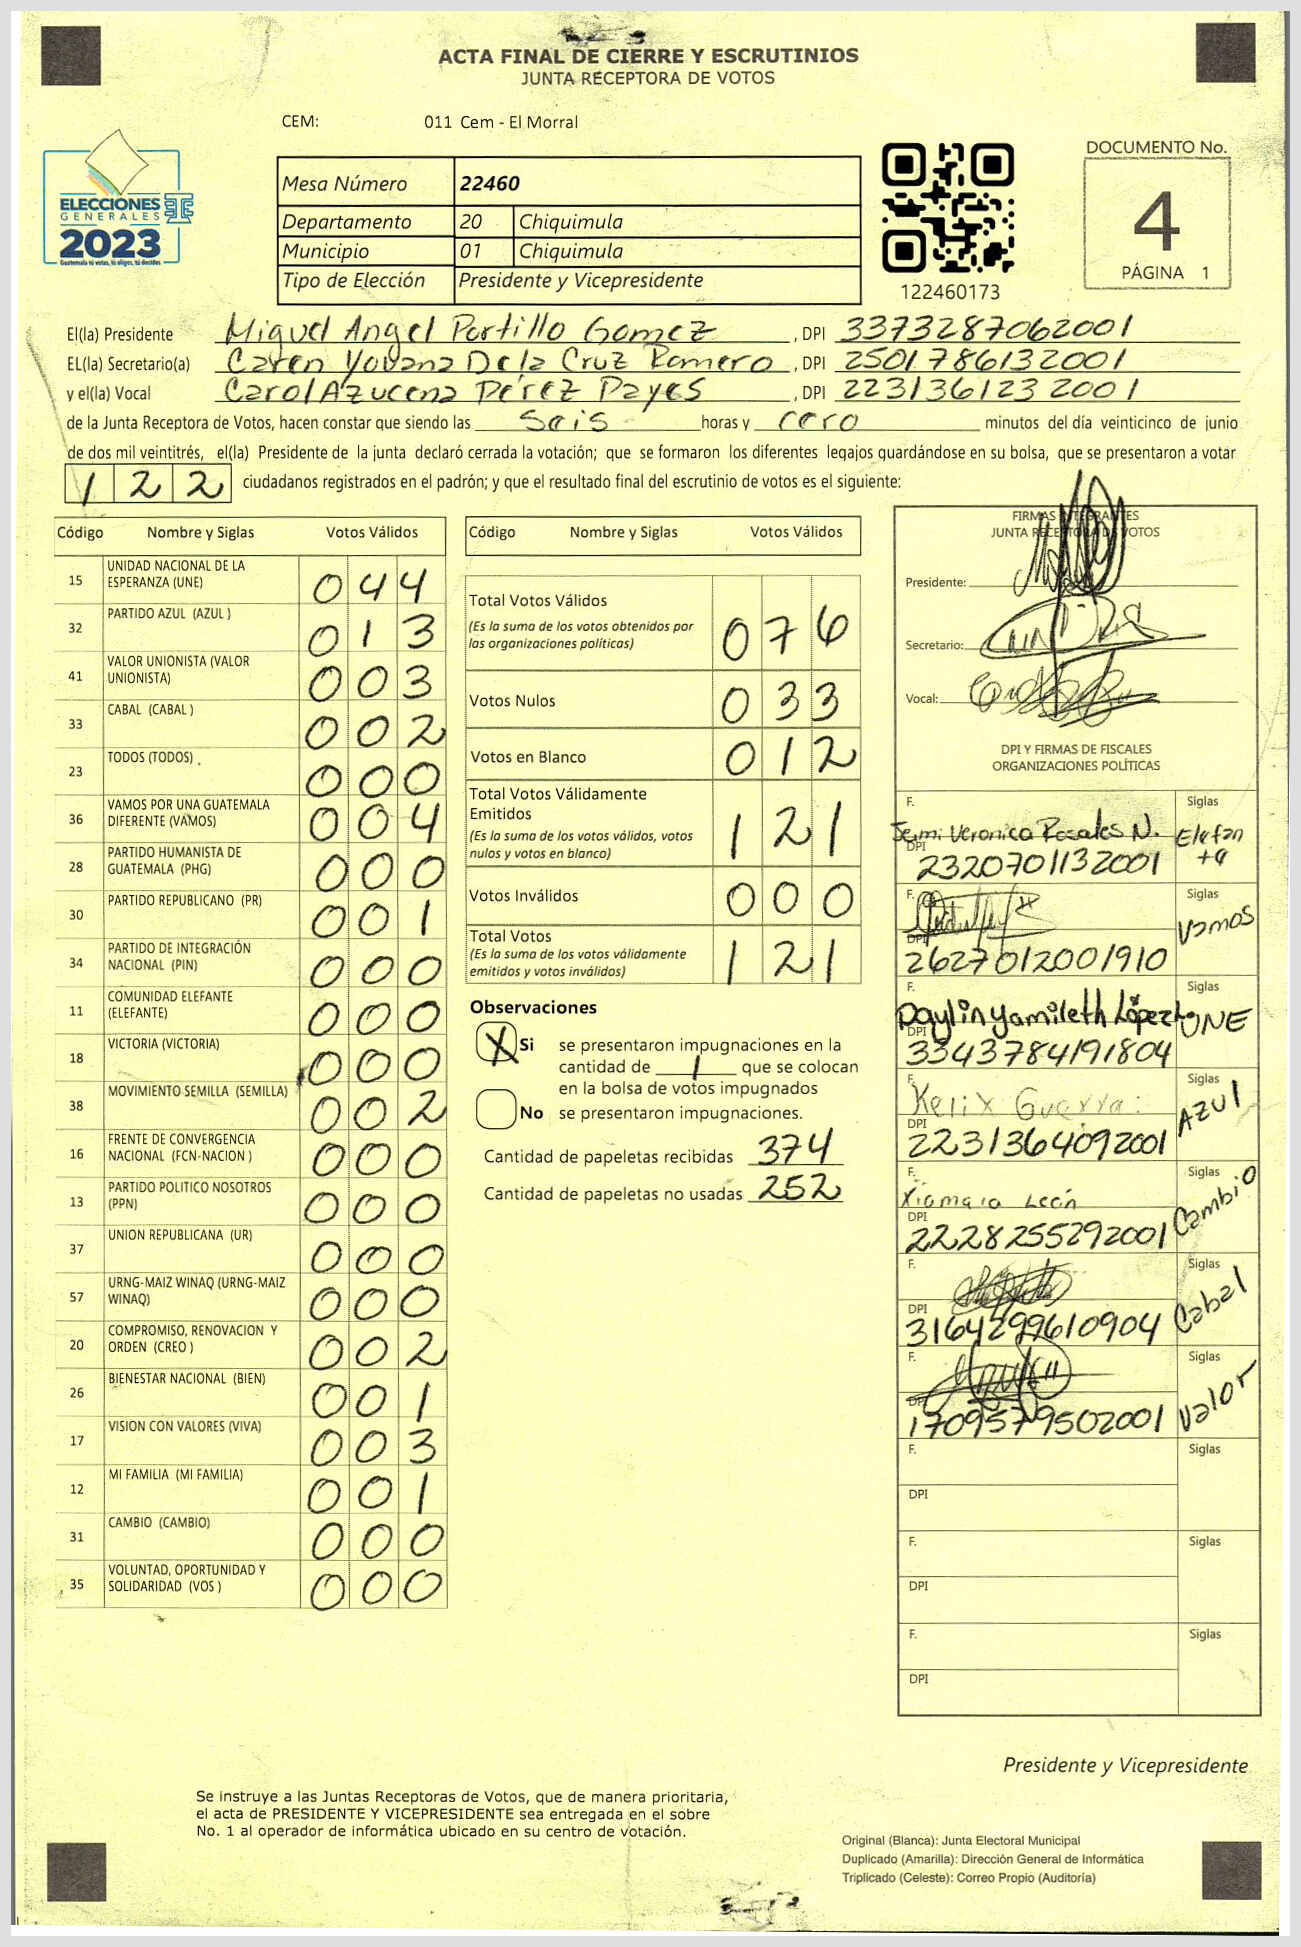 ACTA FINAL DE CIERRE Y ESCRUTINIOS
JUNTA RECEPTORA DE VOTOS
CEM: 011 Cem - El Morral
ELECCIONES
GENERALES
2023
Guatemala tú votas, tú eliges, tú decides
Mesa Número 22460
Departamento 20 Chiquimula
Municipio 01 Chiquimula
Tipo de Elección Presidente y Vicepresidente
122460173
DOCUMENTO No.
4
PÁGINA 1
El(la) Presidente Miguel Angel Portillo Gomez, DPI 3373287062001
EL(la) Secretario(a) Caren Yovana De la Cruz Romero, DPI 2501786132001
y el(la) Vocal Carol Azucena Pérez Payes, DPI 2231361232001
de la Junta Receptora de Votos, hacen constar que siendo las seis horas y cero minutos del día veinticinco de junio
de dos mil veintitrés, el(la) Presidente de la junta declaró cerrada la votación; que se formaron los diferentes legajos guardándose en su bolsa, que se presentaron a votar
122 ciudadanos registrados en el padrón; y que el resultado final del escrutinio de votos es el siguiente:
Código Nombre y Siglas Votos Válidos
15 UNIDAD NACIONAL DE LA ESPERANZA (UNE) 044
32 PARTIDO AZUL (AZUL ) 013
41 VALOR UNIONISTA (VALOR UNIONISTA) 003
33 CABAL (CABAL ) 002
23 TODOS (TODOS) 000
36 VAMOS POR UNA GUATEMALA DIFERENTE (VAMOS) 004
28 PARTIDO HUMANISTA DE GUATEMALA (PHG) 000
30 PARTIDO REPUBLICANO (PR) 001
34 PARTIDO DE INTEGRACIÓN NACIONAL (PIN) 000
11 COMUNIDAD ELEFANTE (ELEFANTE) 000
18 VICTORIA (VICTORIA) 000
38 MOVIMIENTO SEMILLA (SEMILLA) 002
16 FRENTE DE CONVERGENCIA NACIONAL (FCN-NACION ) 000
13 PARTIDO POLITICO NOSOTROS (PPN) 000
37 UNION REPUBLICANA (UR) 000
57 URNG-MAIZ WINAQ (URNG-MAIZ WINAQ) 000
20 COMPROMISO, RENOVACION Y ORDEN (CREO ) 002
26 BIENESTAR NACIONAL (BIEN) 001
17 VISION CON VALORES (VIVA) 003
12 MI FAMILIA (MI FAMILIA) 001
31 CAMBIO (CAMBIO) 000
35 VOLUNTAD, OPORTUNIDAD Y SOLIDARIDAD (VOS ) 000
Código Nombre y Siglas Votos Válidos
Total Votos Válidos 076
(Es la suma de los votos obtenidos por
las organizaciones políticas)
Votos Nulos 033
Votos en Blanco 012
Total Votos Válidamente
Emitidos 121
(Es la suma de los votos válidos, votos
nulos y votos en blanco)
Votos Inválidos 000
Total Votos 121
(Es la suma de los votos válidamente
emitidos y votos inválidos)
Observaciones
X Si se presentaron impugnaciones en la
cantidad de 1 que se colocan
en la bolsa de votos impugnados
No se presentaron impugnaciones.
Cantidad de papeletas recibidas 374
Cantidad de papeletas no usadas 252
FIRMAS INTEGRANTES
JUNTA RECEPTORA DE VOTOS
Presidente:
Secretario:
Vocal:
DPI Y FIRMAS DE FISCALES
ORGANIZACIONES POLÍTICAS
F. Siglas
Veronica Rosales N. Elefan
te
DPI 2320701132001
F. Siglas
Vamos
DPI 2627012001910
F. Siglas
Daylin Yamileth López UNE
DPI 3343784191804
F. Siglas
Kelix Guerra AZUl
DPI 2231364092001
F. Siglas
Xiomara León Cambio
DPI 2228255292001
F. Siglas
Cabal
DPI 3164299610904
F. Siglas
Valor
DPI 1709579502001
F. Siglas
DPI
F. Siglas
DPI
F. Siglas
DPI
Presidente y Vicepresidente
Se instruye a las Juntas Receptoras de Votos, que de manera prioritaria,
el acta de PRESIDENTE Y VICEPRESIDENTE sea entregada en el sobre
No. 1 al operador de informática ubicado en su centro de votación.
Original (Blanca): Junta Electoral Municipal
Duplicado (Amarilla): Dirección General de Informática
Triplicado (Celeste): Correo Propio (Auditoría)